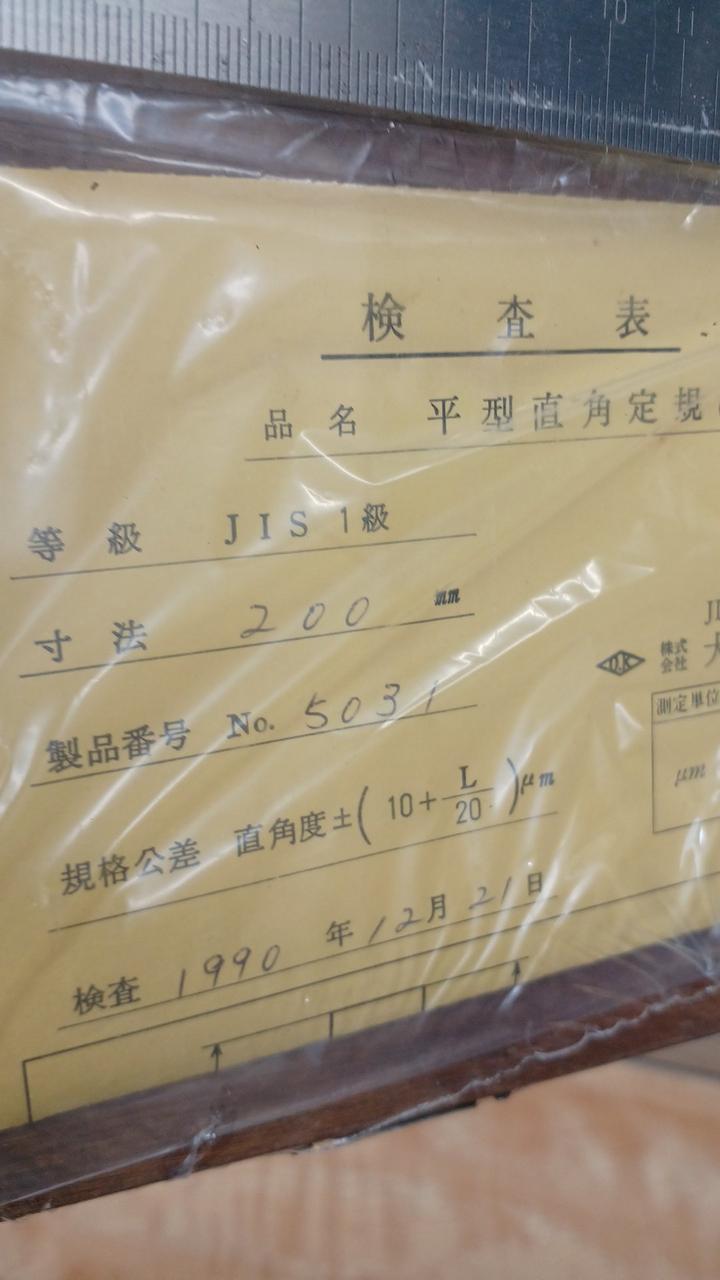 10 11
検査表
品名 平型直角定規
等級 JIS1級
寸法 200 mm
JI
D.K 株式会社 大
製品番号 No. 5031
測定単位
μm
規格公差 直角度±(10+L/20)μm
検査 1990年12月21日